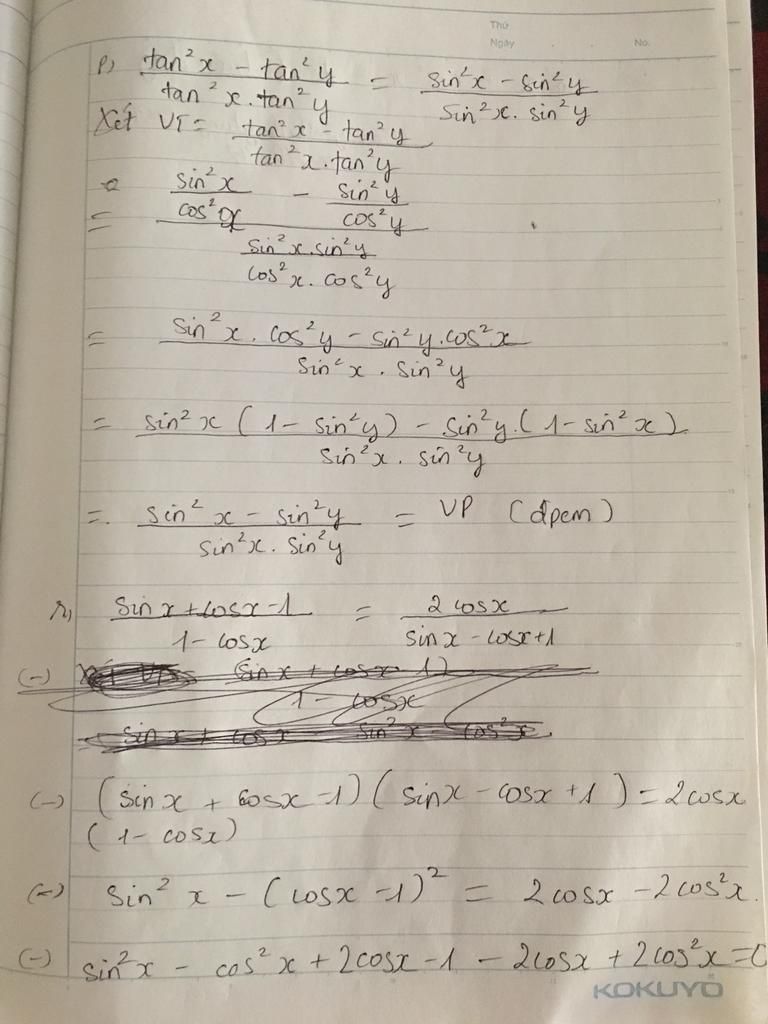 Thứ
Ngày . . No.
p) (tan²x - tan²y)/(tan²x.tan²y) = (sin²x - sin²y)/(sin²x. sin²y)
Xét VT = (tan²x - tan²y)/(tan²x.tan²y)
= (sin²x/cos²x - sin²y/cos²y)/((sin²x.sin²y)/(cos²x.cos²y))
= (sin²x.cos²y - sin²y.cos²x)/(sin²x.sin²y)
= (sin²x(1 - sin²y) - sin²y.(1 - sin²x))/(sin²x.sin²y)
= (sin²x - sin²y)/(sin²x.sin²y) = VP (đpcm)
r) (sinx + cosx - 1)/(1 - cosx) = (2cosx)/(sinx - cosx + 1)
(=) (sinx + cosx - 1)(sinx - cosx + 1) = 2cosx
(1 - cosx)
(=) sin²x - (cosx - 1)² = 2cosx - 2cos²x.
(=) sin²x - cos²x + 2cosx - 1 - 2cosx + 2cos²x = 0
KOKUYO